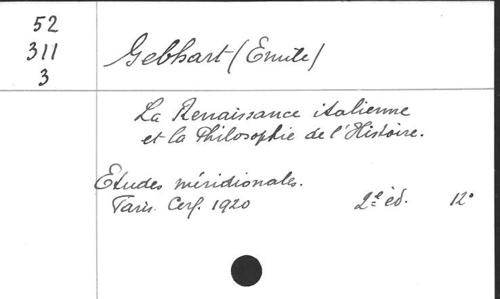 52
311
3
Gebhart (Emile)
La Renaissance italienne
et la Philosophie de l'Histoire.
Etudes méridionales.
Paris. Cerf. 1920
2e éd. 12°